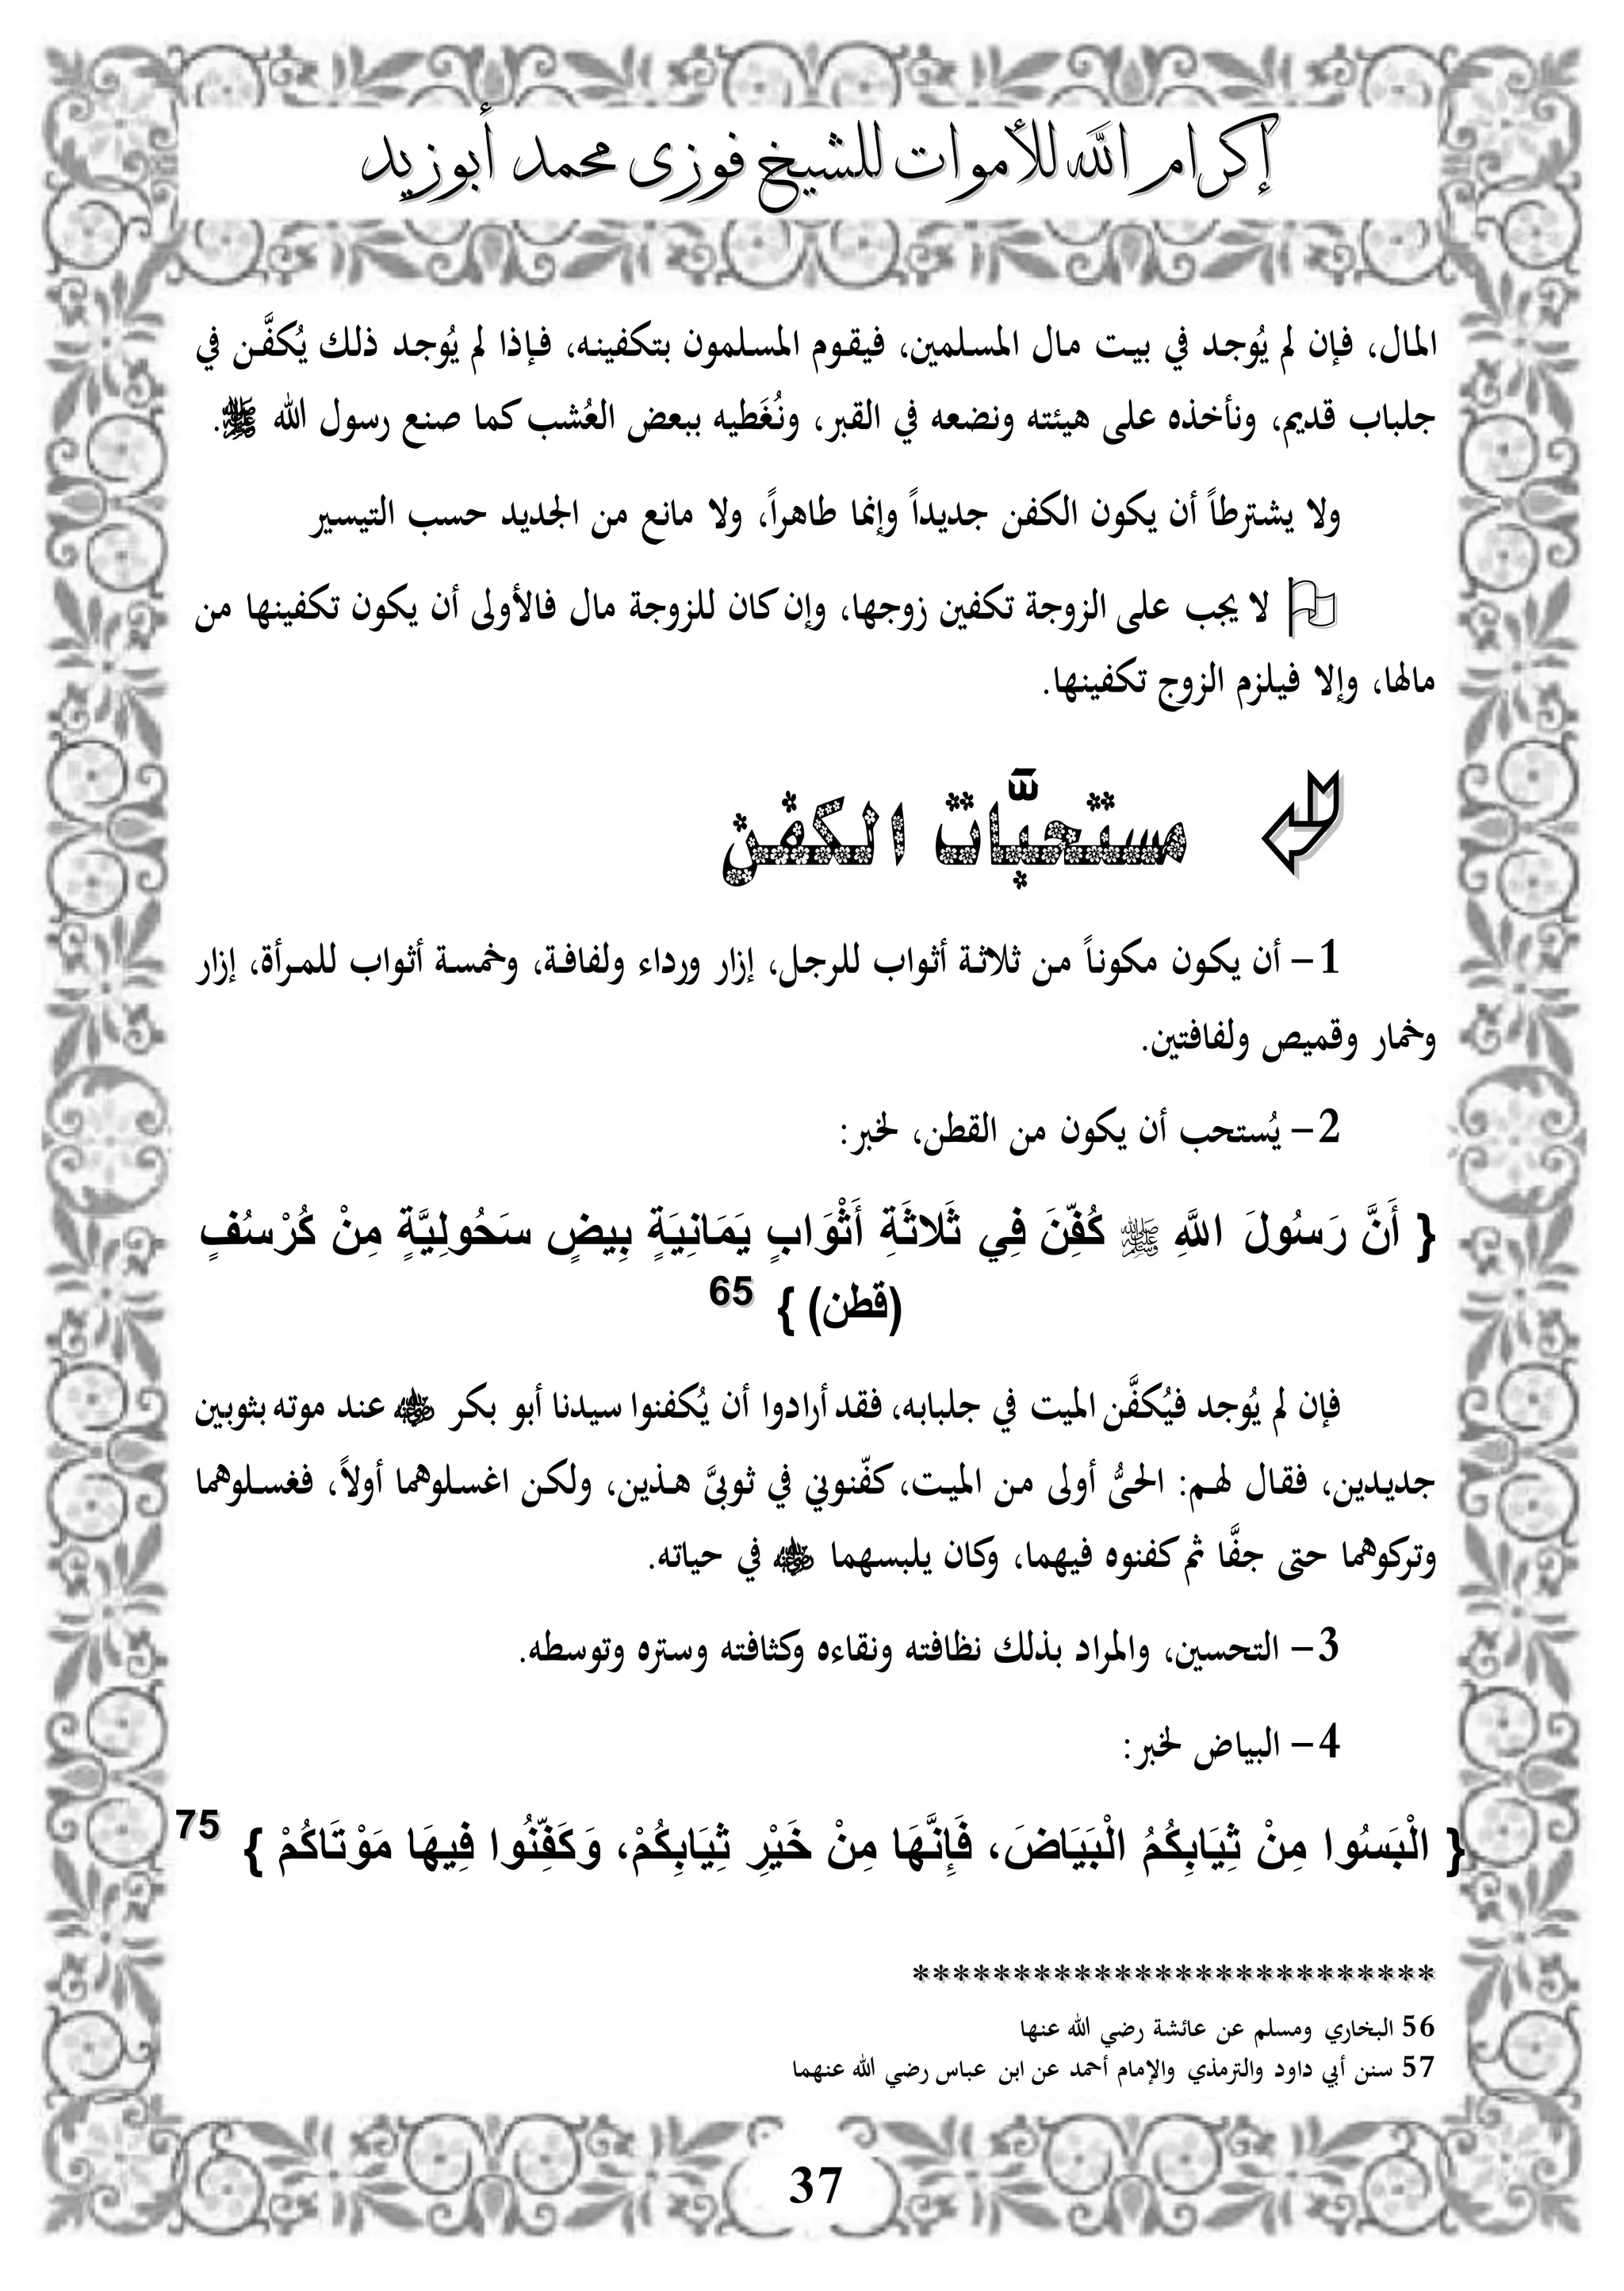 إكرام الله للأموات للشيخ فوزى محمد أبوزيد
المال، فإن لم يُوجد في بيت مال المسلمين، فيقوم المسلمون بتكفينه، فإذا لم يُوجد ذلك يُكفَّن في
جلباب قديم، ونأخذه على هيئته ونضعه في القبر، ونُغَطيه ببعض العُشب كما صنع رسول الله ﷺ.
ولا يشترطاً أن يكون الكفن جديداً وإنما طاهراً، ولا مانع من الجديد حسب التيسير
لا يجب على الزوجة تكفين زوجها، وإن كان للزوجة مال فالأولى أن يكون تكفينها من
مالها، وإلا فيلزم الزوج تكفينها.
مستحبَّات الكفن
1- أن يكون مكوناً من ثلاثة أثواب للرجل، إزار ورداء ولفافة، وخمسة أثواب للمرأة، إزار
وخمار وقميص ولفافتين.
2- يُستحب أن يكون من القطن، لخبر:
{ أَنَّ رَسُولَ اللَّهِ ﷺ كُفِّنَ فِي ثَلاثَةِ أَثْوَابٍ يَمَانِيَةٍ بِيضٍ سَحُولِيَّةٍ مِنْ كُرْسُفٍ
(قطن) } 65
فإن لم يُوجد فيُكفَّن الميت في جلبابه، فقد أرادوا أن يُكفنوا سيدنا أبو بكر ﵁ عند موته بثوبين
جديدين، فقال لهم: الحىُّ أولى من الميت، كفّنوني في ثوبىَّ هذين، ولكن اغسلوهما أولاً، فغسلوهما
وتركوهما حتى جفَّا ثم كفنوه فيهما، وكان يلبسهما ﵁ في حياته.
3- التحسين، والمراد بذلك نظافته ونقاءه وكثافته وستره وتوسطه.
4- البياض لخبر:
{ الْبَسُوا مِنْ ثِيَابِكُمُ الْبَيَاضَ، فَإِنَّهَا مِنْ خَيْرِ ثِيَابِكُمْ، وَكَفِّنُوا فِيهَا مَوْتَاكُمْ } 75
**************************
56 البخاري ومسلم عن عائشة رضي الله عنها
57 سنن أبي داود والترمذي والإمام أحمد عن ابن عباس رضي الله عنهما
37